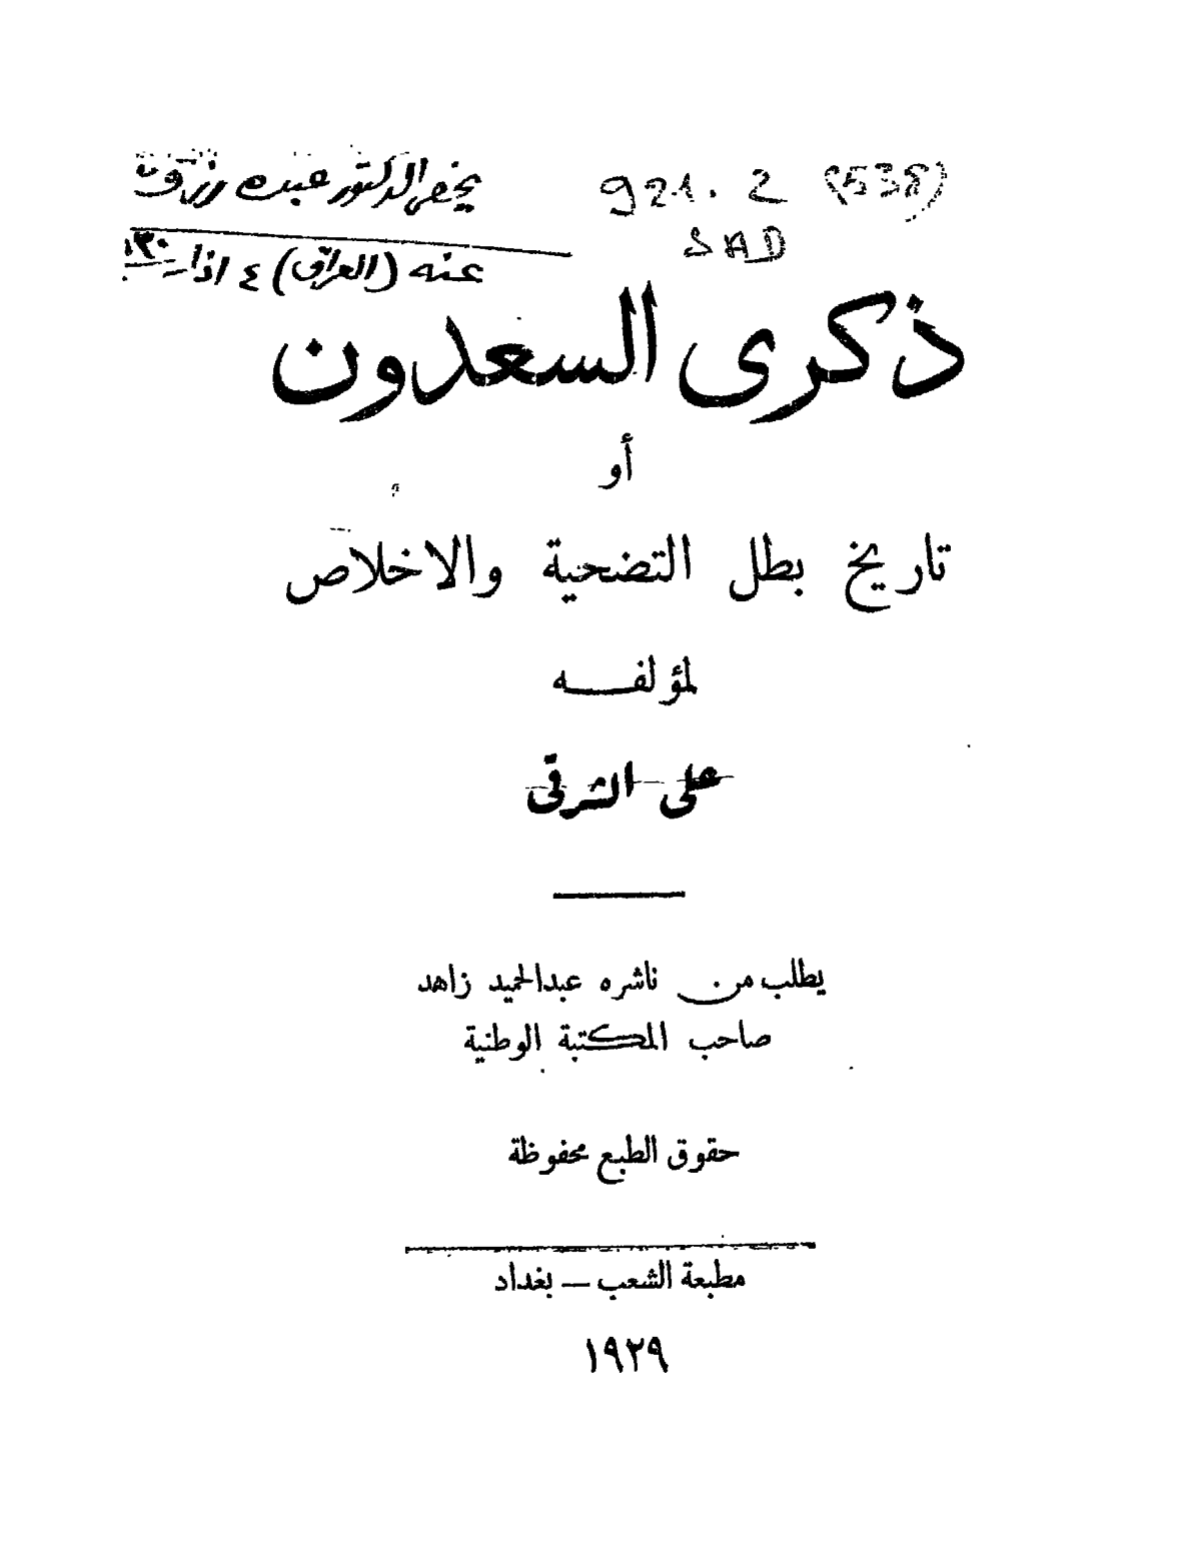 يخص الدكتور عبده رزوق
921.2 (538)
SAD
عنه (العراق) ٤ اذار ٩٣٠
ذكرى السعدون
أو
تاريخ بطل التضحية والاخلاص
لمؤلفه
علي الشرقي
يطلب من ناشره عبدالحميد زاهد
صاحب المكتبة الوطنية
حقوق الطبع محفوظة
مطبعة الشعب — بغداد
١٩٢٩